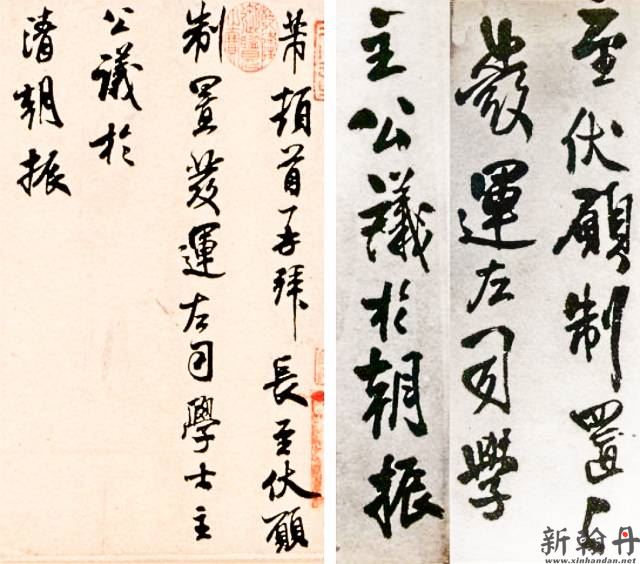 芾頓首再拜長至伏願
制置發運左司學士主
公議於
清朝振
至伏願制置
發運左司學
主公議於朝振
新翰丹
www.xinhandan.net